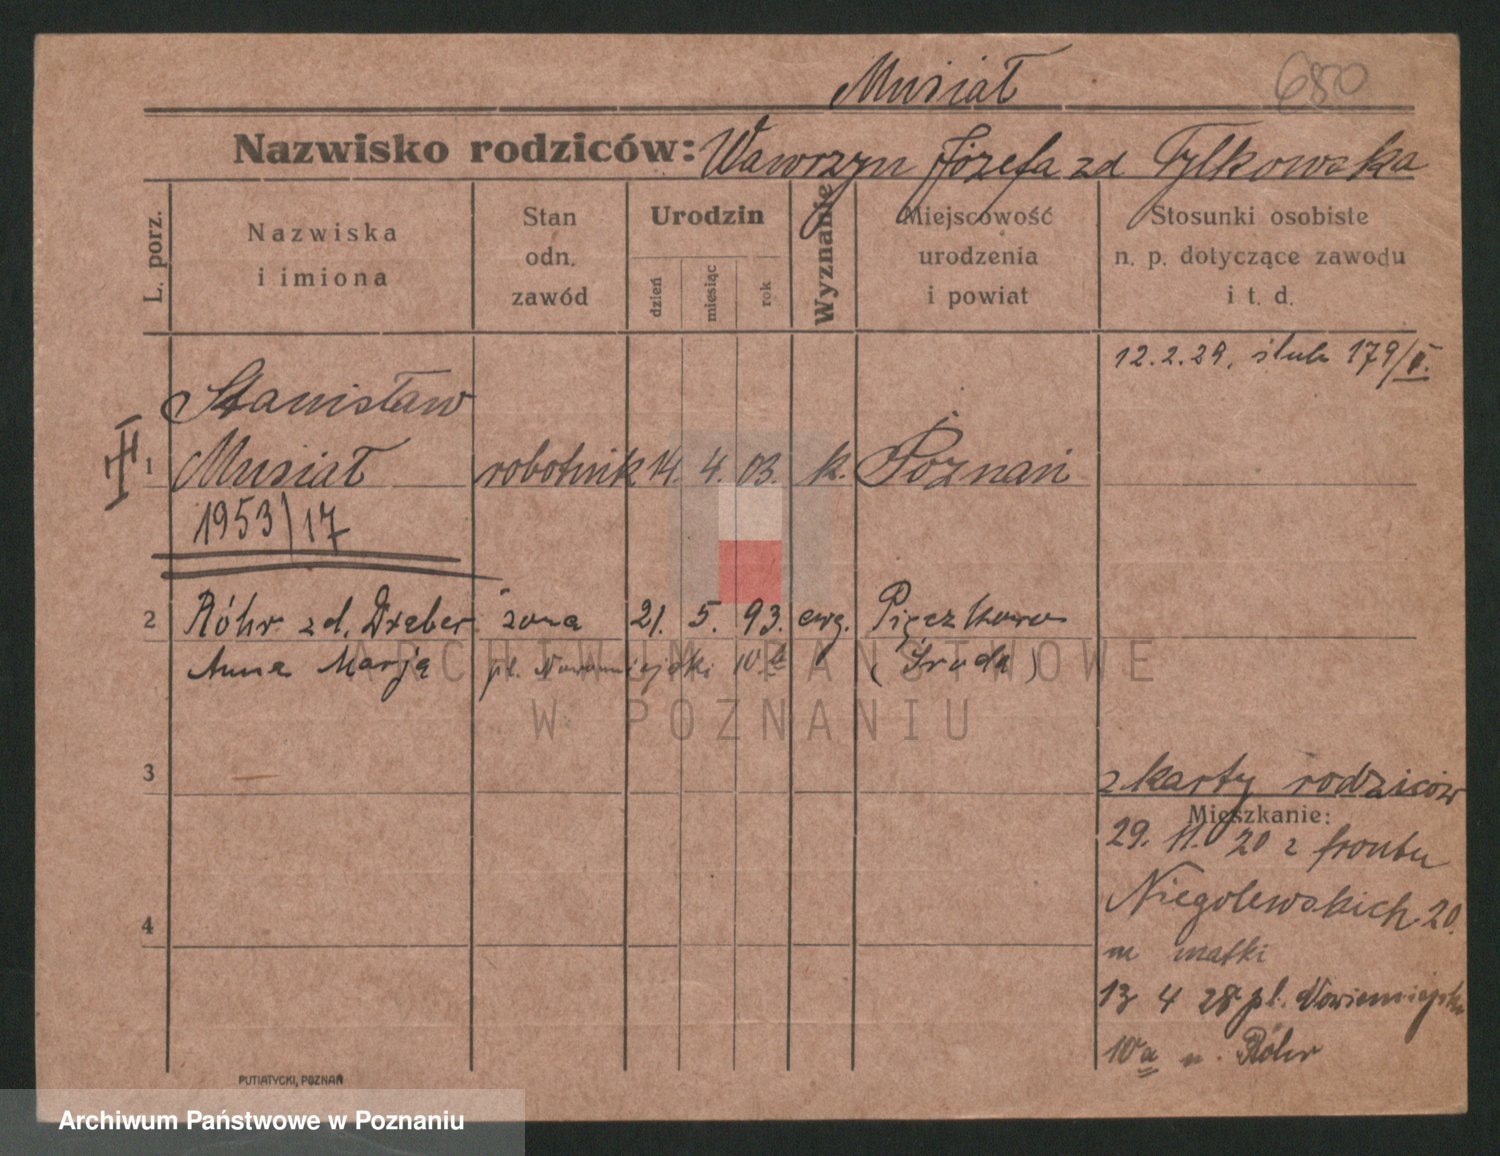 Musiał 680
Nazwisko rodziców: Wawrzyn Józefa zd Tylkowska
L. porz.
Nazwiska
i imiona
Stan
odn.
zawód
Urodzin
dzień
miesiąc
rok
Wyznanie
Miejscowość
urodzenia
i powiat
Stosunki osobiste
n. p. dotyczące zawodu
i t. d.
12.2.29. ślub 179/II.
Stanisław
1 Musiał robotnik 14. 4. 03. k. Poznań
1953/17
2 Röhr zd. Dreber żona 21. 5. 93. ewg. Pięczkowo
Anna Marja pl. Nowomiejski 10a (Środa)
ARCHIWUM PAŃSTWOWE
W POZNANIU
3
z karty rodziców
Mieszkanie:
29. 11. 20 z frontu
Niegolewskich 20.
4
m matki
13 4 28 pl. Nowiemiejski
10a u. Röhr
PUTIATYCKI, POZNAŃ
Archiwum Państwowe w Poznaniu